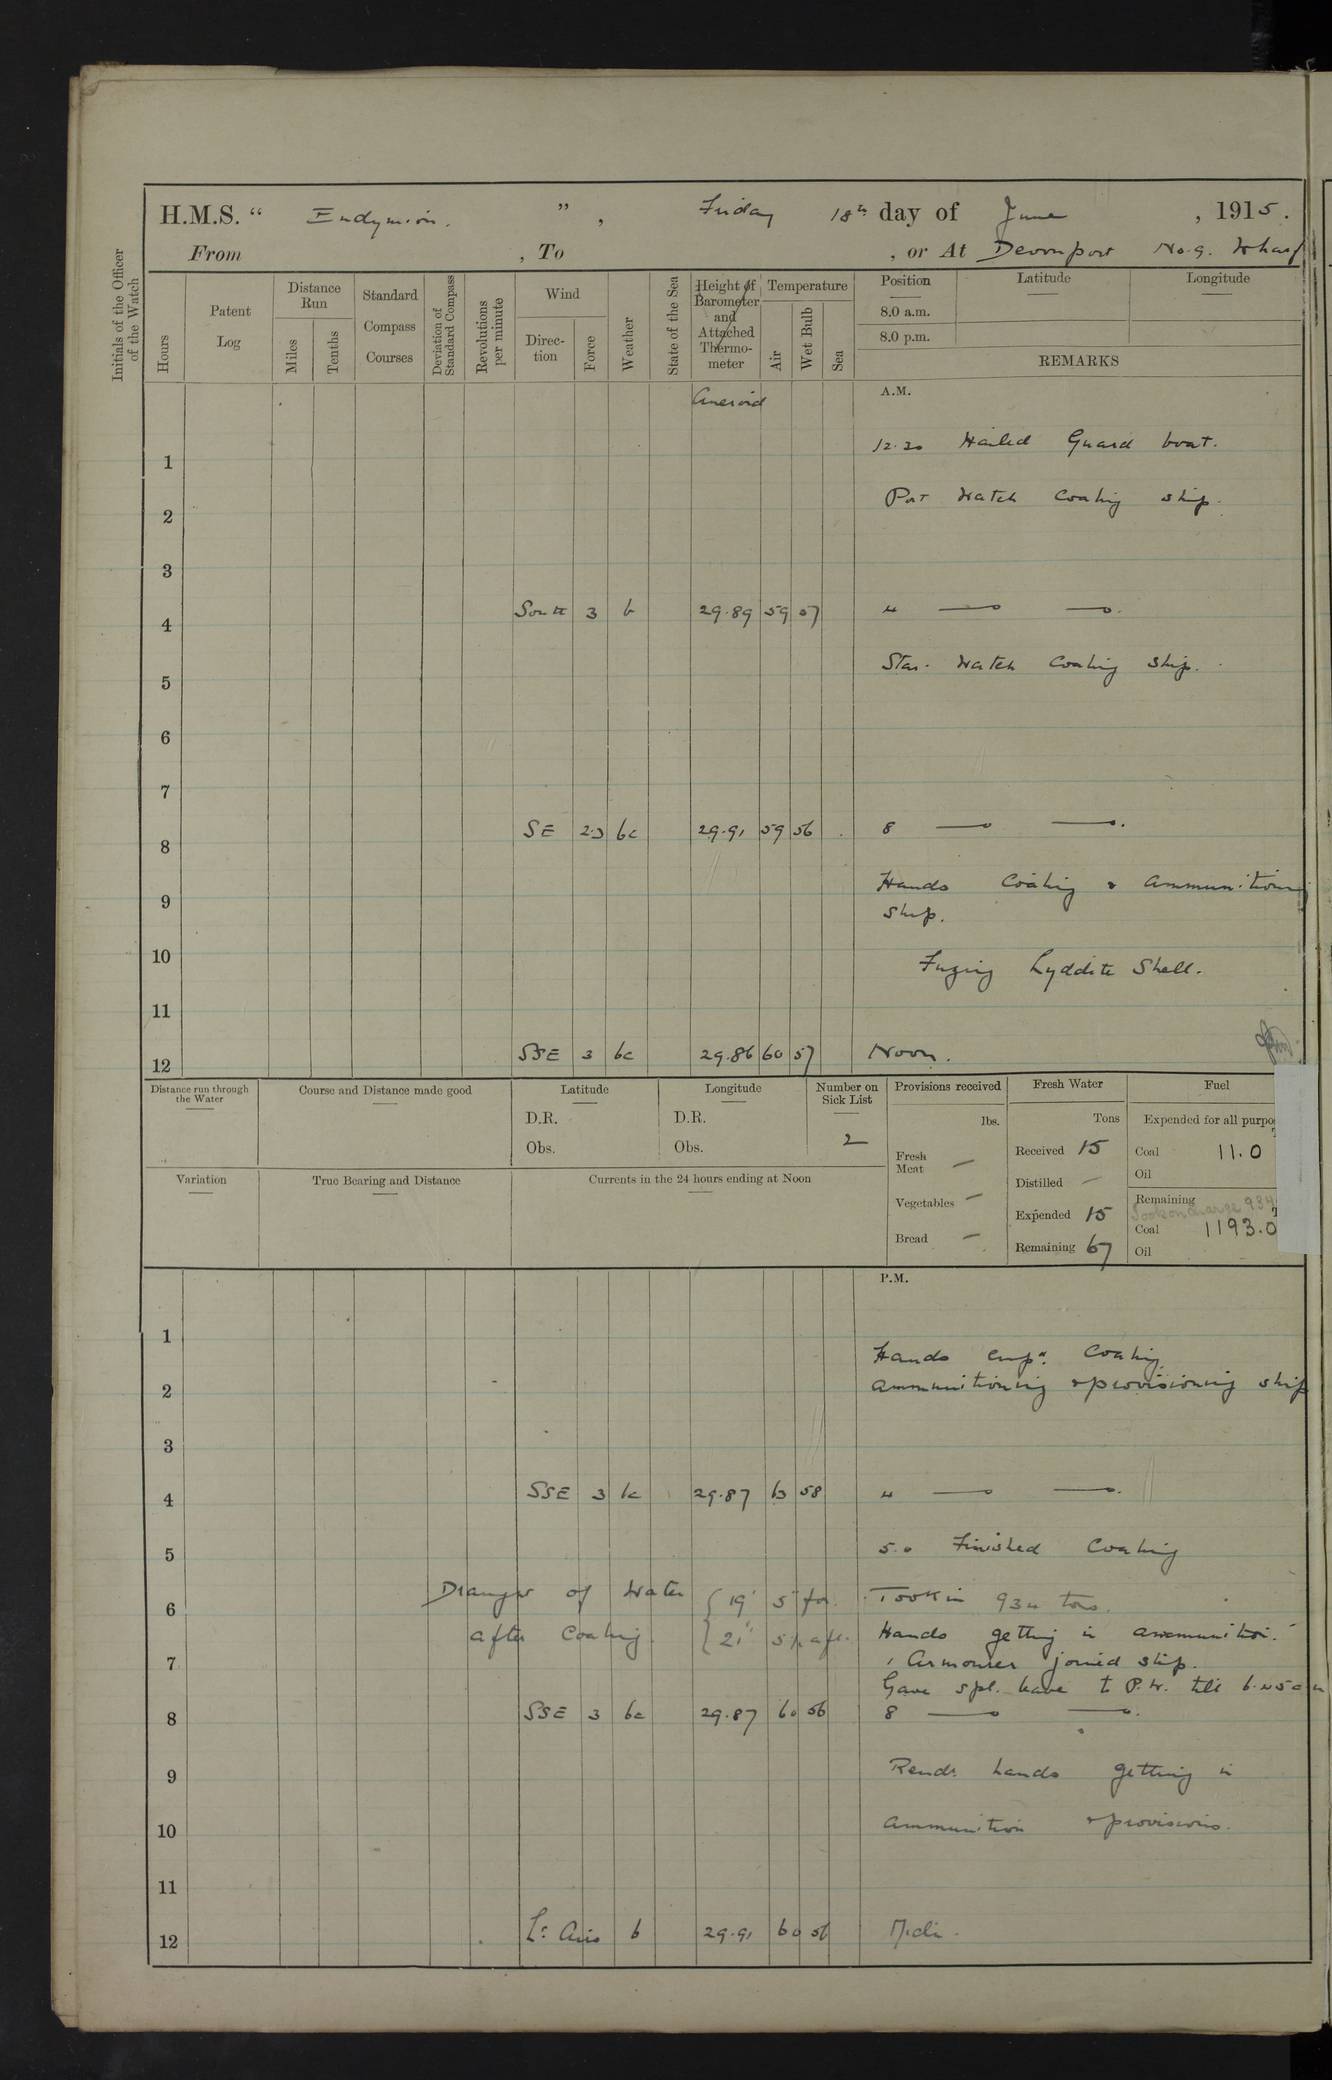 H.M.S. " Endymion. ", Friday 18th day of June, 1915.
From , To , or At Devonport No. 9. Wharf
Initials of the Officer of the Watch
Hours
Patent Log
Distance Run
Miles
Tenths
Standard Compass Courses
Deviation of Standard Compass
Revolutions per minute
Wind
Direction
Force
Weather
State of the Sea
Height of Barometer and Attached Thermometer
Temperature
Air
Wet Bulb
Sea
Position
Latitude
Longitude
8.0 a.m.
8.0 p.m.
REMARKS
Aneroid A.M.
12.20 Hailed Guard boat.
1
Port Watch Coaling ship.
2
3
4 South 3 b 29.89 59 57 4 — —.
Star. Watch Coaling ship.
5
6
7
8 SE 2.3 bc 29.91 59 56 8 — —.
Hands Coaling & ammunitioning
9 ship.
10 Fuzing Lyddite Shell.
11
12 SSE 3 bc 29.86 60 57 Noon.
Distance run through the Water
Course and Distance made good
Latitude
D.R.
Obs.
Longitude
D.R.
Obs.
Number on Sick List
2
Provisions received
lbs.
Fresh Meat —
Vegetables —
Bread —
Fresh Water
Tons
Received 15
Distilled —
Expended 15
Remaining 67
Fuel
Expended for all purpo
Coal 11.0
Oil
Remaining
Took on charge 934
Coal 1193.0
Oil
Variation
True Bearing and Distance
Currents in the 24 hours ending at Noon
P.M.
1
Hands emp. Coaling
2 ammunitioning & provisioning ship
3
4 SSE 3 bc 29.87 63 58 4 — —.
5.0 Finished Coaling
5
Draught of Water { 19' 5" for. Took in 934 tons.
6
after Coaling. { 21' 5" aft. Hands getting in ammunition.
7 1 Armourer joined ship.
Gave spl. leave to P.W. till 6.45 am
8 SSE 3 bc 29.87 60 56 8 — —.
9 Reads. hands getting in
10 ammunition & provisions.
11
12 Lt Airs b 29.91 60 56 Midt.